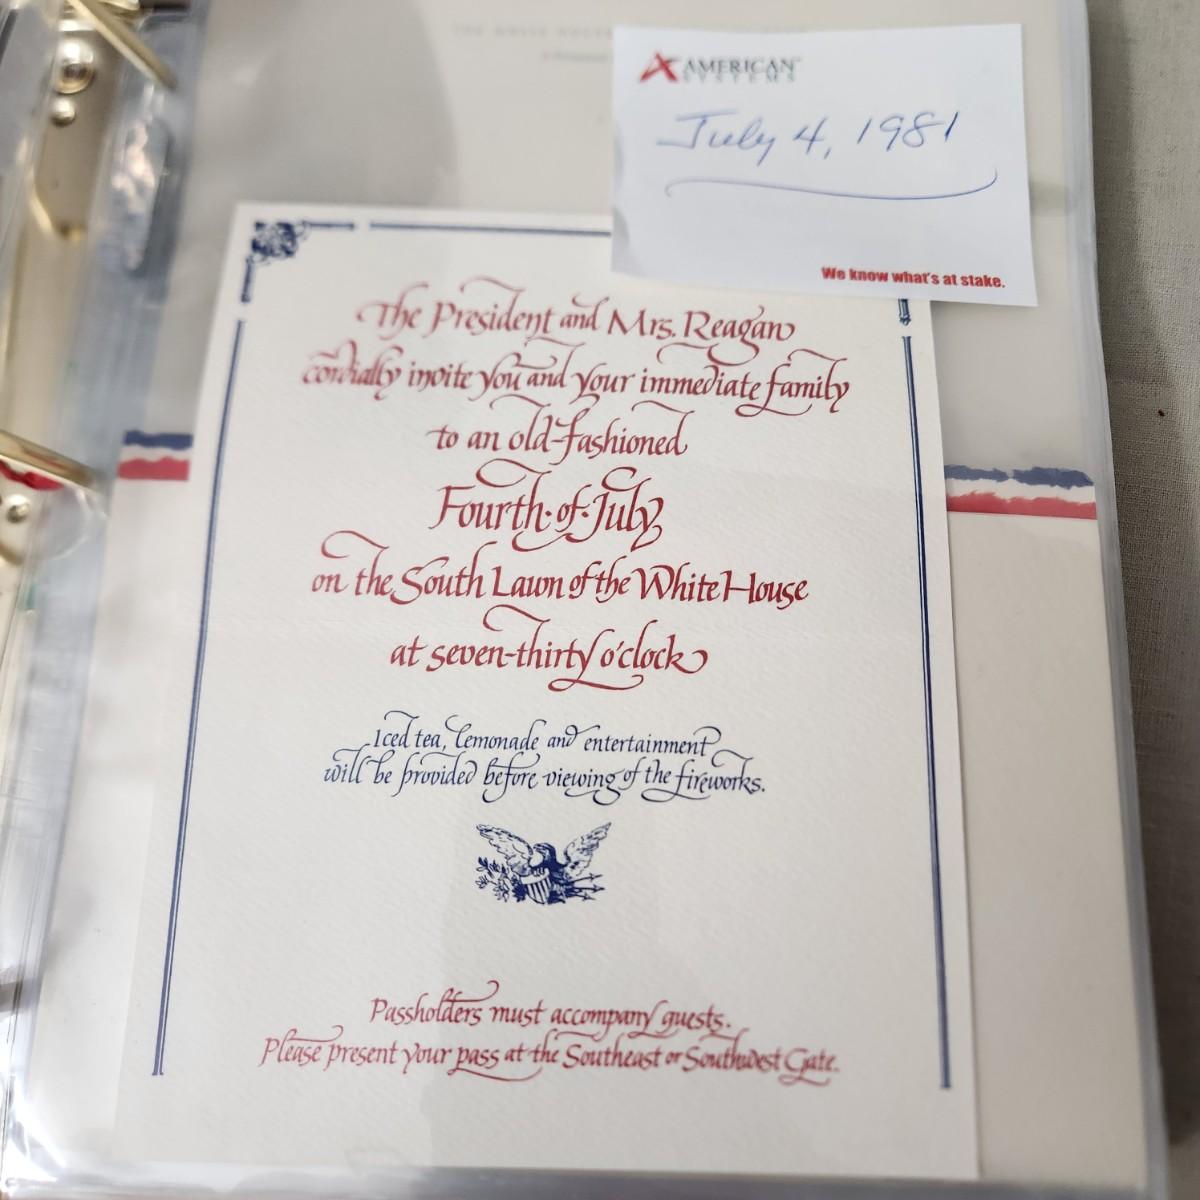 THE WHITE HOUSE
AMERICAN
SYSTEMS
July 4, 1981
We know what's at stake.
The President and Mrs. Reagan
cordially invite you and your immediate family
to an old-fashioned
Fourth·of·July
on the South Lawn of the White House
at seven-thirty o'clock
Iced tea, lemonade and entertainment
will be provided before viewing of the fireworks.
Passholders must accompany guests.
Please present your pass at the Southeast or Southwest Gate.